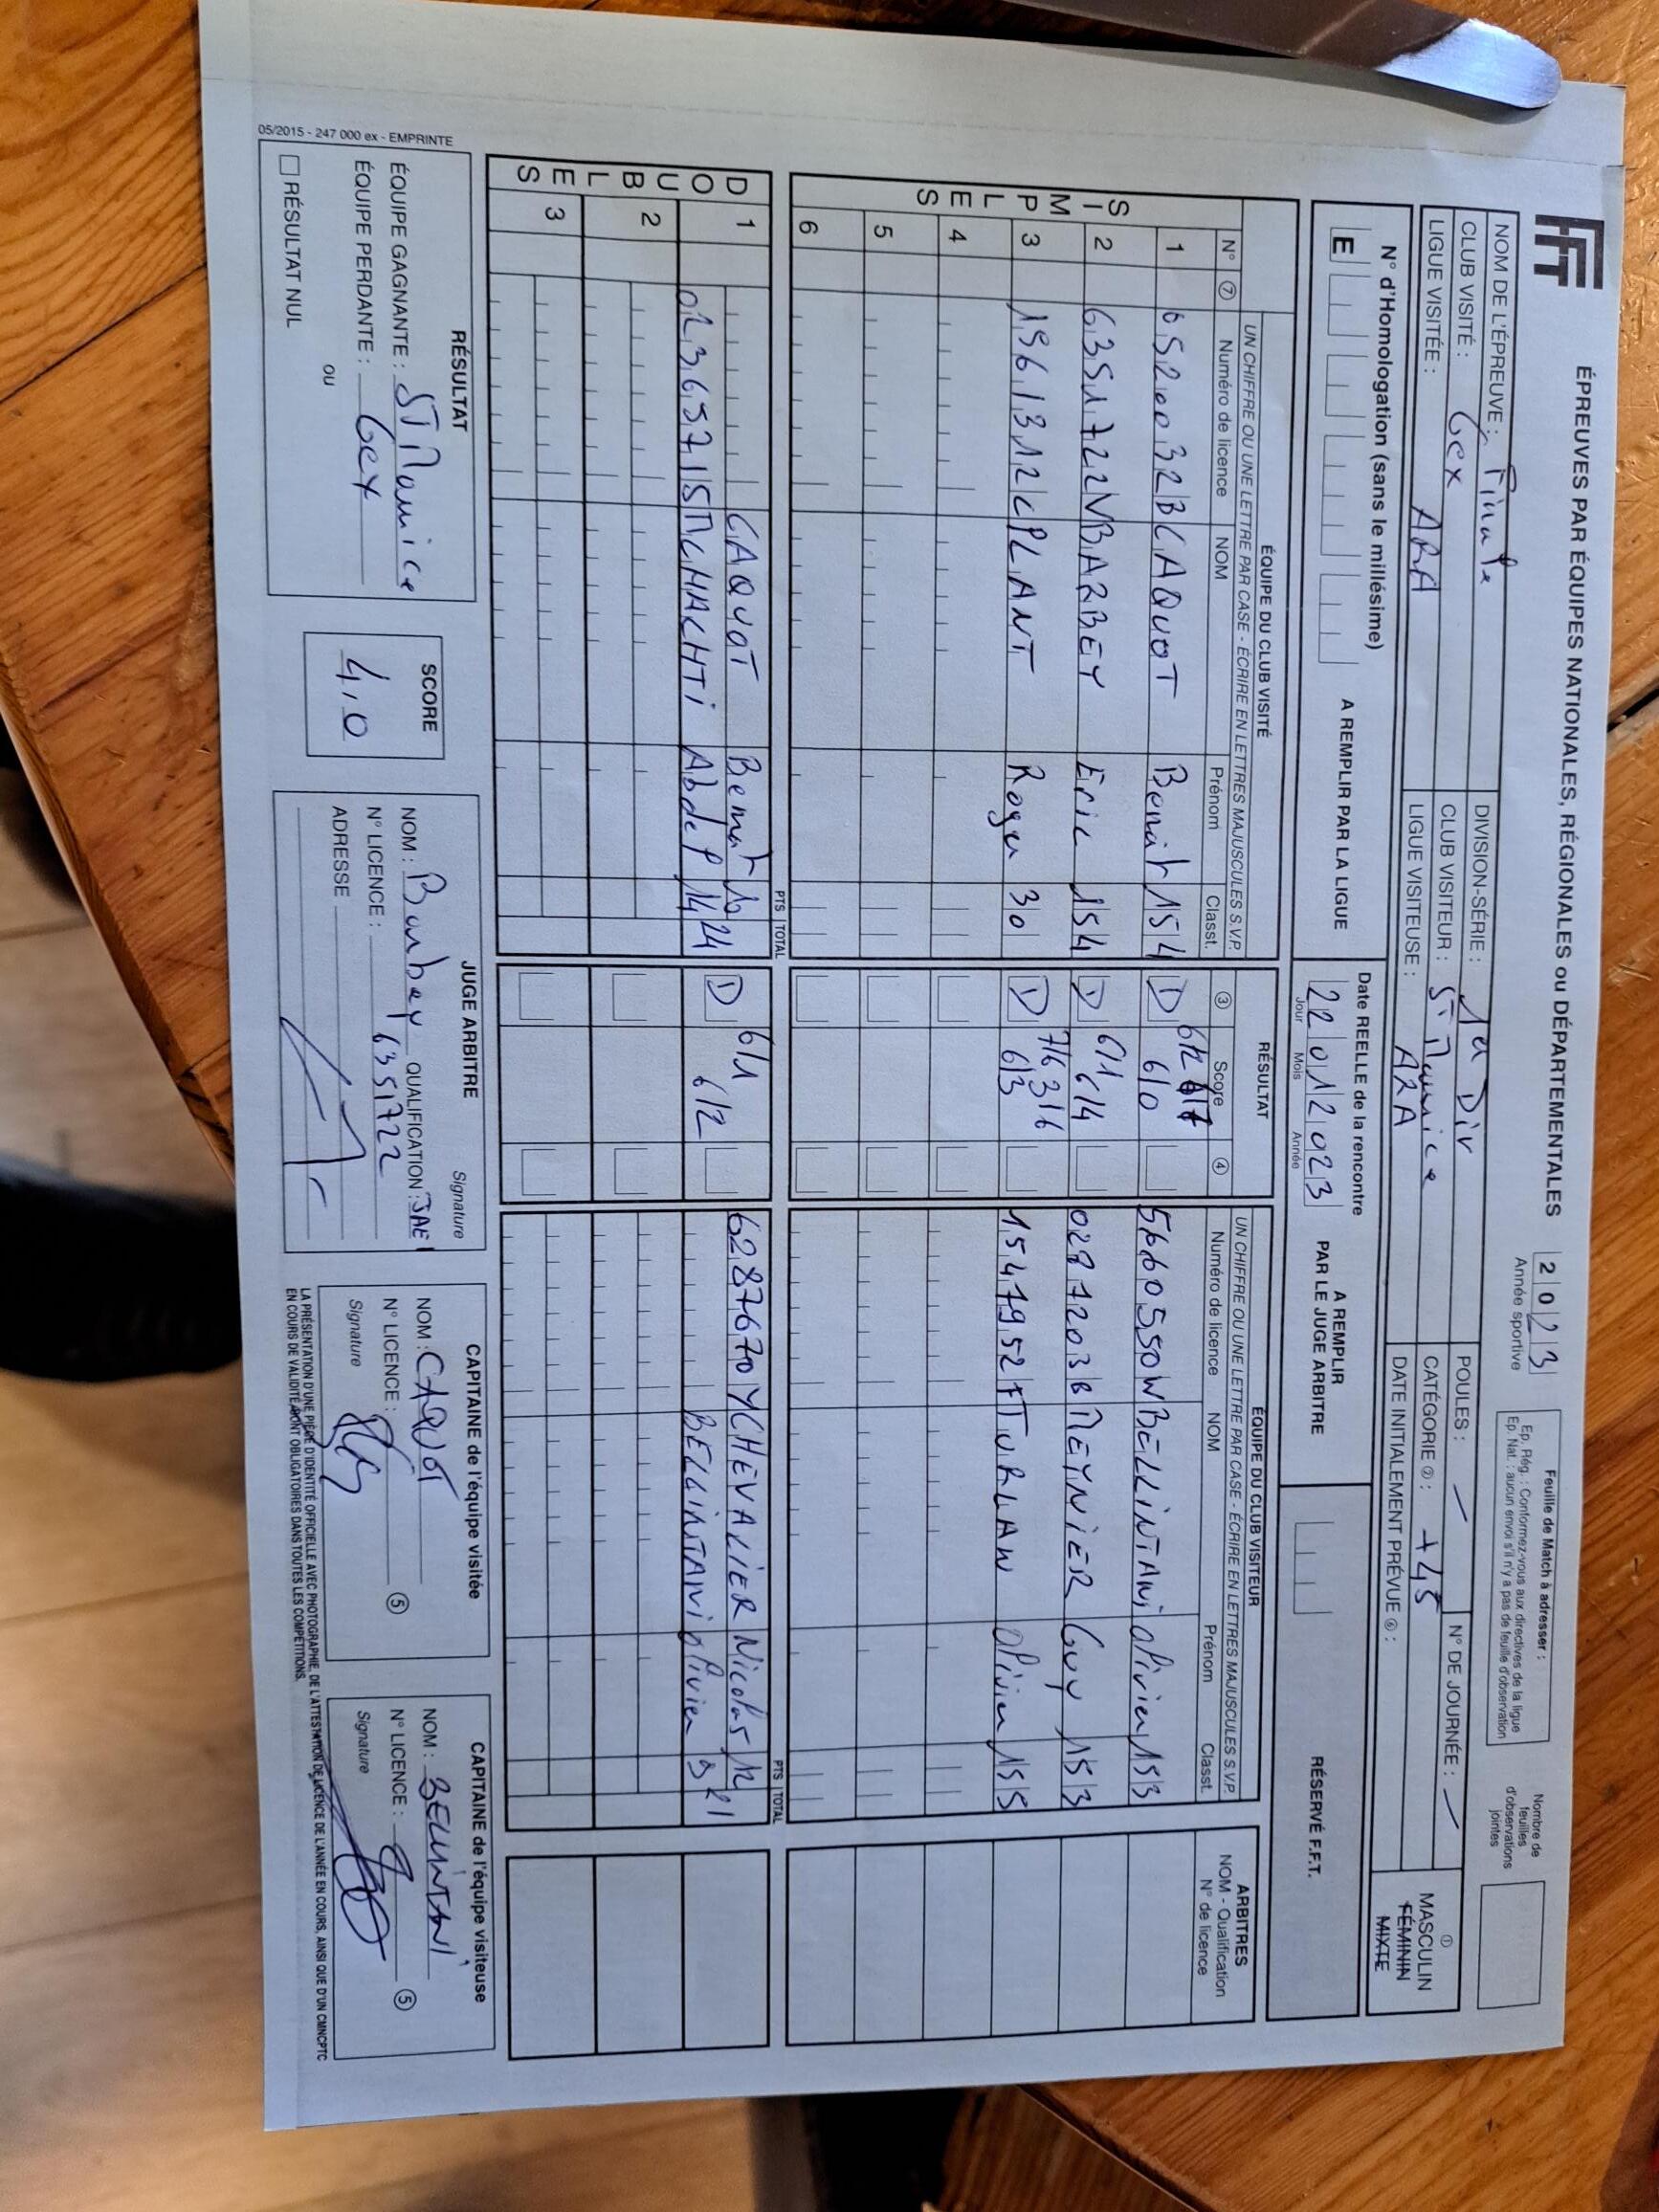 FFT
ÉPREUVES PAR ÉQUIPES NATIONALES, RÉGIONALES ou DÉPARTEMENTALES
2023
Année sportive
Feuille de Match à adresser :
Ep. Rég. : Conformez-vous aux directives de la ligue
Ep. Nat. : aucun envoi s'il n'y a pas de feuille d'observation
Nombre de feuilles d'observations jointes
NOM DE L'ÉPREUVE : Finale
DIVISION-SÉRIE : 1a Div
POULES : /
N° DE JOURNÉE : /
CLUB VISITÉ : Gex
CLUB VISITEUR : ST Maurice
CATÉGORIE ② : +45
LIGUE VISITÉE : ARA
LIGUE VISITEUSE : ARA
DATE INITIALEMENT PRÉVUE ⑥ :
① MASCULIN
FÉMININ
MIXTE
N° d'Homologation (sans le millésime)
E
A REMPLIR PAR LA LIGUE
Date REELLE de la rencontre
22 01 2023
Jour Mois Année
A REMPLIR PAR LE JUGE ARBITRE
RÉSERVÉ F.F.T.
ÉQUIPE DU CLUB VISITÉ
UN CHIFFRE OU UNE LETTRE PAR CASE - ÉCRIRE EN LETTRES MAJUSCULES S.V.P.
N° ⑦ Numéro de licence NOM Prénom Classt.
RÉSULTAT
③ Score ④
ÉQUIPE DU CLUB VISITEUR
UN CHIFFRE OU UNE LETTRE PAR CASE - ÉCRIRE EN LETTRES MAJUSCULES S.V.P.
Numéro de licence NOM Prénom Classt.
ARBITRES
NOM - Qualification
N° de licence
SIMPLES
1 6520032B CAQUOT Benoit 15 4 D 6/2 6/0 5660550W BELLINTANI Olivier 15 3
2 6351722V BARBEY Eric 15 4 D 6/1 6/4 0287203B MEYNIER Guy 15 3
3 1961312C PLANT Roger 30 D 7/6 3/6 6/3 1547952F TURLAN Olivier 15 5
4
5
6
PTS TOTAL
PTS TOTAL
DOUBLES
1 CAQUOT Benoit 10 D 6/1 6/2 6287670Y CHEVALIER Nicolas 12
0236571S MCHACHTI Abdel 14 24 BELLINTANI Olivier 9 21
2
3
RÉSULTAT
ÉQUIPE GAGNANTE : ST Maurice
ÉQUIPE PERDANTE : Gex
ou
RÉSULTAT NUL
SCORE
4,0
JUGE ARBITRE
NOM : Barbey QUALIFICATION : JAE1
N° LICENCE : 6351722
ADRESSE
Signature
CAPITAINE de l'équipe visitée
NOM : CAQUOT
N° LICENCE : ⑤
Signature
CAPITAINE de l'équipe visiteuse
NOM : BELLINTANI
N° LICENCE : ⑤
Signature
LA PRÉSENTATION D'UNE PIÈCE D'IDENTITÉ OFFICIELLE AVEC PHOTOGRAPHIE, DE L'ATTESTATION DE LICENCE DE L'ANNÉE EN COURS, AINSI QUE D'UN CMNCPTC
EN COURS DE VALIDITÉ SONT OBLIGATOIRES DANS TOUTES LES COMPÉTITIONS.
05/2015 - 247 000 ex - EMPRINTE